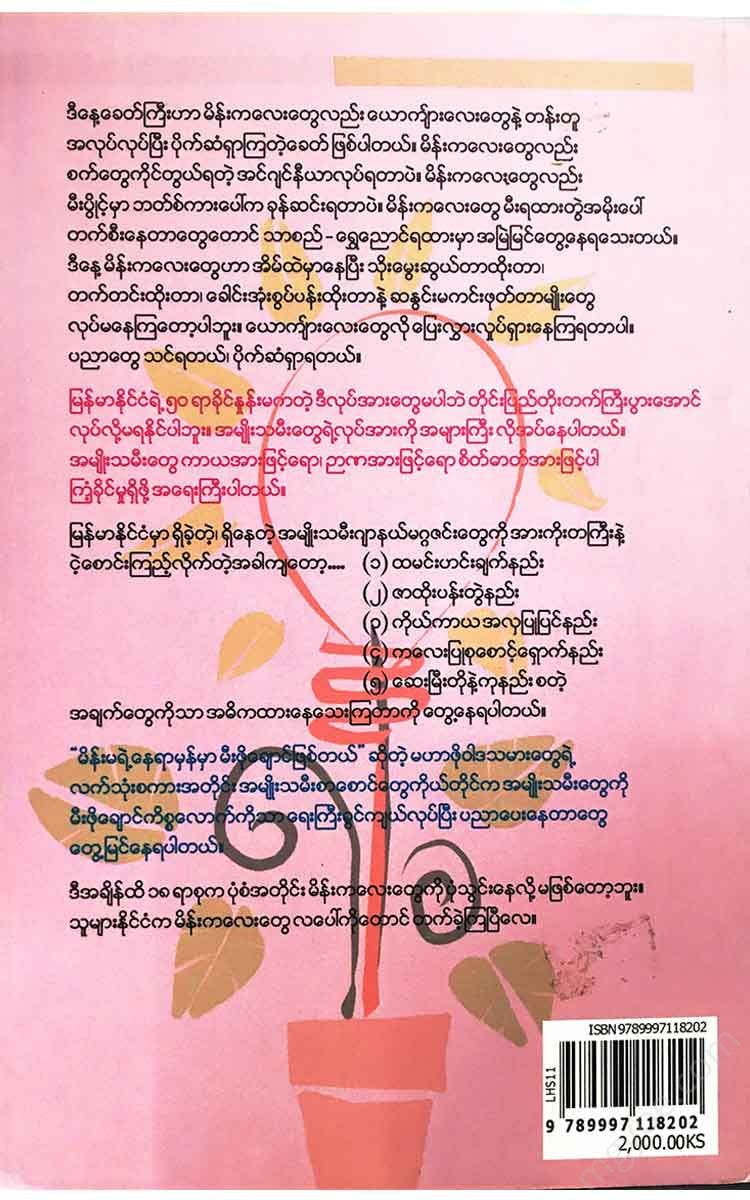 ဒီနေ့ခေတ်ကြီးဟာ မိန်းကလေးတွေလည်း ယောက်ျားလေးတွေနဲ့ တန်းတူ
အလုပ်လုပ်ပြီး ပိုက်ဆံရှာကြတဲ့ခေတ် ဖြစ်ပါတယ်။ မိန်းကလေးတွေလည်း
စက်တွေကိုင်တွယ်ရတဲ့ အင်ဂျင်နီယာလုပ်ရတာပဲ။ မိန်းကလေးတွေလည်း
မီးပွိုင့်မှာ ဘတ်စ်ကားပေါ်က ခုန်ဆင်းရတာပဲ။ မိန်းကလေးတွေ မီးရထားတွဲအမိုးပေါ်
တက်စီးနေတာတွေတောင် သာစည် - ရွှေညောင်ရထားမှာ အမြဲမြင်တွေ့နေရသေးတယ်။
ဒီနေ့ မိန်းကလေးတွေဟာ အိမ်ထဲမှာနေပြီး သိုးမွေးဆွယ်တာထိုးတာ၊
တက်တင်းထိုးတာ၊ ခေါင်းအုံးစွပ်ပန်းထိုးတာနဲ့ ဆနွင်းမကင်းဖုတ်တာမျိုးတွေ
လုပ်မနေကြတော့ပါဘူး။ ယောက်ျားလေးတွေလို ပြေးလွှားလှုပ်ရှားနေကြရတာပါ။
ပညာတွေ သင်ရတယ်၊ ပိုက်ဆံရှာရတယ်။
မြန်မာနိုင်ငံရဲ့ ၅၀ ရာခိုင်နှုန်းမကတဲ့ ဒီလုပ်အားတွေမပါဘဲ တိုင်းပြည်တိုးတက်ကြီးပွားအောင်
လုပ်လို့မရနိုင်ပါဘူး။ အမျိုးသမီးတွေရဲ့လုပ်အားကို အများကြီး လိုအပ်နေပါတယ်။
အမျိုးသမီးတွေ ကာယအားဖြင့်ရော၊ ဉာဏအားဖြင့်ရော စိတ်ဓာတ်အားဖြင့်ပါ
ကြံ့ခိုင်မှုရှိဖို့ အရေးကြီးပါတယ်။
မြန်မာနိုင်ငံမှာ ရှိခဲ့တဲ့၊ ရှိနေတဲ့ အမျိုးသမီးဂျာနယ်မဂ္ဂဇင်းတွေကို အားကိုးတကြီးနဲ့
ငဲ့စောင်းကြည့်လိုက်တဲ့အခါကျတော့.... (၁) ထမင်းဟင်းချက်နည်း
(၂) ဇာထိုးပန်းတွဲနည်း
(၃) ကိုယ်ကာယ အလှပြုပြင်နည်း
(၄) ကလေးပြုစုစောင့်ရှောက်နည်း
(၅) ဆေးမြီးတိုနဲ့ကုနည်း စတဲ့
အချက်တွေကိုသာ အဓိကထားနေသေးကြတာကို တွေ့နေရပါတယ်။
"မိန်းမရဲ့နေရာမှန်မှာ မီးဖိုချောင်ဖြစ်တယ်" ဆိုတဲ့ မဟာဖိုဝါဒသမားတွေရဲ့
လက်သုံးစကားအတိုင်း အမျိုးသမီးစာစောင်တွေကိုယ်တိုင်က အမျိုးသမီးတွေကို
မီးဖိုချောင်ကိစ္စလောက်ကိုသာ ရေးကြီးခွင်ကျယ်လုပ်ပြီး ပညာပေးနေတာတွေ
တွေ့မြင်နေရပါတယ်။
ဒီအချိန်ထိ ၁၈ ရာစုက ပုံစံအတိုင်း မိန်းကလေးတွေကို ပုံသွင်းနေလို့ မဖြစ်တော့ဘူး။
သူများနိုင်ငံက မိန်းကလေးတွေ လပေါ်ကိုတောင် တက်ခဲ့ကြပြီလေ။
ISBN 9789997118202
LHS11
9 789997 118202
2,000.00KS